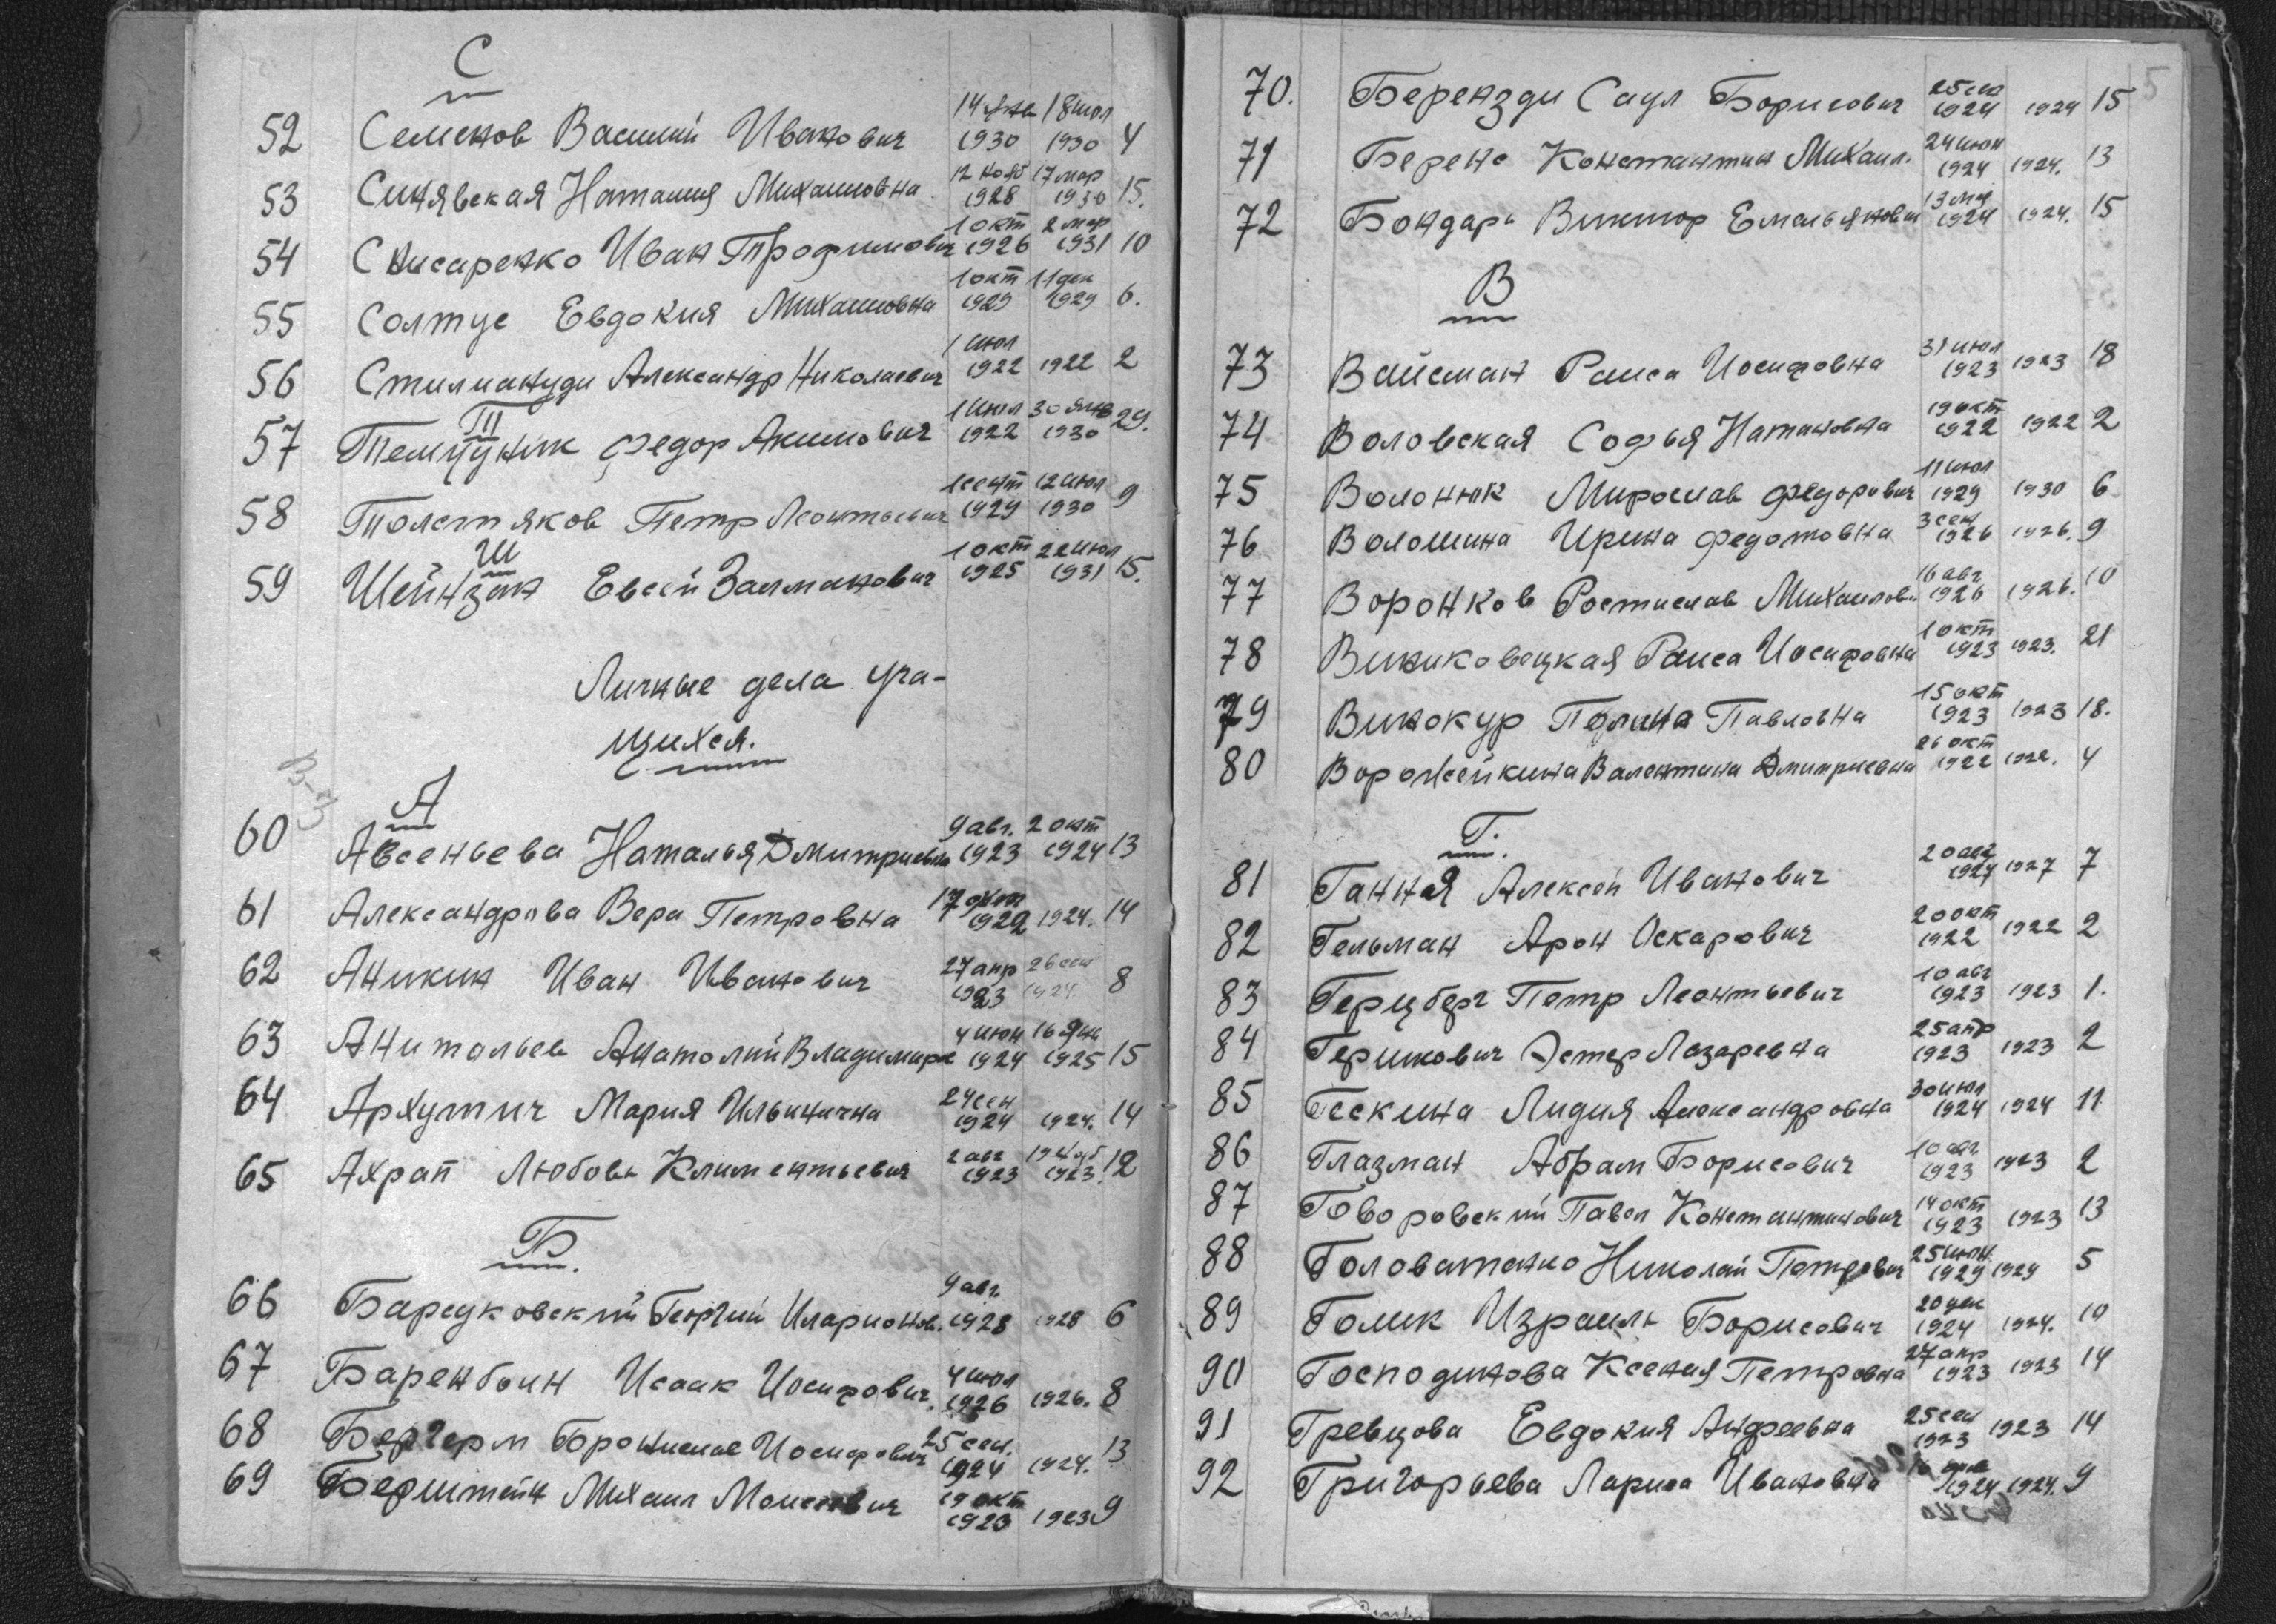 С
52 Семенов Василий Иванович 14 янв 1930 18 июл 1930 4
53 Синявская Наталия Михайловна 12 нояб 1928 17 мар 1930 15.
54 Снисаренко Иван Трофимович 1 окт 1926 2 мар 1931 10
55 Солтус Евдокия Михайловна 1 окт 1929 11 дек 1929 6.
56 Стилиануди Александр Николаевич 1 июл 1922 1922 2
Т
57 Темцуник Федор Акимович 1 июл 1922 30 янв 1930 29.
58 Толстяков Петр Леонтьевич 1 сент 1929 12 июл 1930 9
Ш
59 Шейнзон Евсей Залманович 1 окт 1925 22 июл 1931 15.
Личные дела уча-
щихся.
В-3
А
60 Авсеньева Наталья Дмитриевна 9 авг. 1923 2 окт 1924 13
61 Александрова Вера Петровна 17 1922 1924. 14
62 Аникин Иван Иванович 27 апр 1923 26 сен 1924 8
63 Анитольев Анатолий Владимиро 4 июн 1924 16 янв 1925 15
64 Архутич Мария Ильинична 24 сен 1924 1924. 14
65 Ахрап Любовь Климентьевич 2 авг 1923 1923. 12
Б.
66 Барсуковский Георгий Иларионов. 9 авг. 1928 1928 6
67 Баренбоин Исаак Иосифович. 4 июл 1926 1926. 8
68 Бергерм Бронислав Иосифович 25 сен. 1924 1924. 13
69 Берштейн Михаил Моисеевич 19 окт 1923 1923 9
5
70. Берензди Саул Борисович 25 сен 1924 1924 15
71 Беренс Константин Михаил. 24 июн 1924 1924. 13
72 Бондарь Виктор Емельянович 13 1924 1924. 15
В
73 Вайсман Раиса Иосифовна 31 июл 1923 1923 18
74 Воловская Софья Натановна 19 окт 1922 1922 2
75 Волонюк Мирослав Федорович 11 июл 1929 1930 6
76 Волошина Ирина Федотовна 3 сен 1926 1926. 9
77 Воронков Ростислав Михайлов. 16 авг 1926 1926. 10
78 Виниковецкая Раиса Иосифовна 1 окт 1923 1923. 21
79 Винокур Полина Павловна 15 окт 1923 1923 18.
80 Ворожейкина Валентина Дмитриевна 26 окт 1922 1922. 4
Г.
81 Ганная Алексей Иванович 20 авг 1927 1927 7
82 Гельман Арон Оскарович 20 окт 1922 1922 2
83 Герцберг Петр Леонтьевич 10 авг 1923 1923 1.
84 Гершкович Эстер Лазаревна 25 апр 1923 1923 2
85 Гескина Лидия Александровна 30 июл 1924 1924 11
86 Глазман Абрам Борисович 10 авг 1923 1923 2
87 Говоровский Павел Константинович 14 окт 1923 1923 13
88 Головатенко Николай Петрович 25 июн 1929 1929 5
89 Голик Израиль Борисович 20 дек 1924 1924. 10
90 Господинова Ксения Петровна 27 апр 1923 1923 14
91 Гревцова Евдокия Андреевна 25 сен 1923 1923 14
92 Григорьева Лариса Ивановна 1924 1924. 9